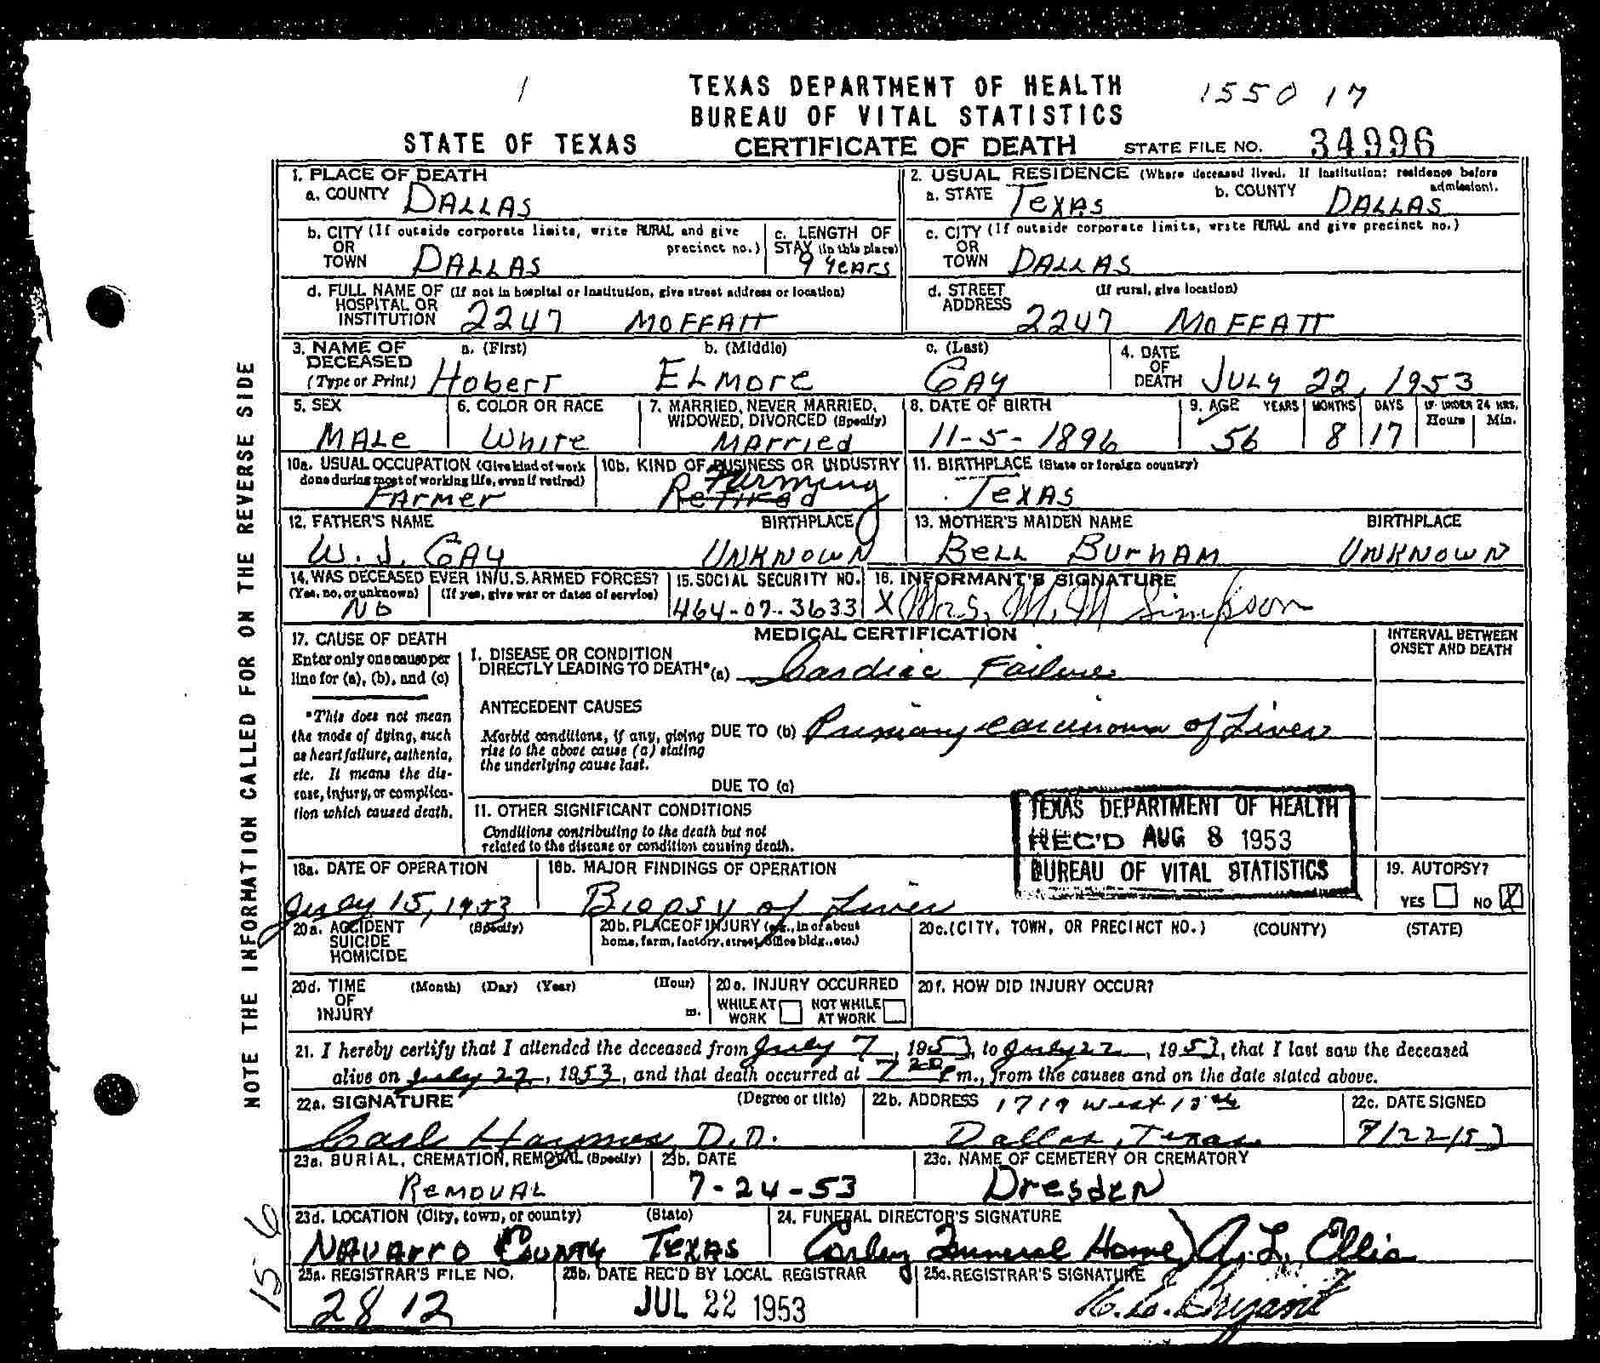 1
TEXAS DEPARTMENT OF HEALTH
1550 17
BUREAU OF VITAL STATISTICS
STATE OF TEXAS CERTIFICATE OF DEATH STATE FILE NO. 34996
1. PLACE OF DEATH
a. COUNTY DALLAS
2. USUAL RESIDENCE (Where deceased lived. If institution: residence before admission).
a. STATE TEXAS b. COUNTY DALLAS
b. CITY (If outside corporate limits, write RURAL and give precinct no.)
OR
TOWN DALLAS
c. LENGTH OF
STAY (in this place)
9 YEARS
c. CITY (If outside corporate limits, write RURAL and give precinct no.)
OR
TOWN DALLAS
d. FULL NAME OF (If not in hospital or institution, give street address or location)
HOSPITAL OR
INSTITUTION 2247 MOFFATT
d. STREET (If rural, give location)
ADDRESS 2247 MOFFATT
3. NAME OF DECEASED (Type or Print)
a. (First) b. (Middle) c. (Last)
Hobert ELMore GAY
4. DATE OF DEATH JULY 22, 1953
5. SEX
MALe
6. COLOR OR RACE
White
7. MARRIED, NEVER MARRIED, WIDOWED, DIVORCED (Specify)
MArried
8. DATE OF BIRTH
11-5-1896
9. AGE YEARS MONTHS DAYS IF UNDER 24 HRS. Hours Min.
56 8 17
10a. USUAL OCCUPATION (Give kind of work done during most of working life, even if retired)
FArmer
10b. KIND OF BUSINESS OR INDUSTRY
Farming
Retired
11. BIRTHPLACE (State or foreign country)
TexAs
12. FATHER'S NAME BIRTHPLACE
W. J. GAY UNKNOWN
13. MOTHER'S MAIDEN NAME BIRTHPLACE
BeLL BurHAM UNKNOWN
14. WAS DECEASED EVER IN U.S. ARMED FORCES?
(Yes, no, or unknown) (If yes, give war or dates of service)
NO
15. SOCIAL SECURITY NO.
464-07-3633
16. INFORMANT'S SIGNATURE
X Mrs. M. M Simpson
MEDICAL CERTIFICATION
INTERVAL BETWEEN
ONSET AND DEATH
17. CAUSE OF DEATH
Enter only one cause per
line for (a), (b), and (c)
*This does not mean
the mode of dying, such
as heart failure, asthenia,
etc. It means the dis-
ease, injury, or complica-
tion which caused death.
I. DISEASE OR CONDITION
DIRECTLY LEADING TO DEATH* (a) Cardiac Failure
ANTECEDENT CAUSES
Morbid conditions, if any, giving
rise to the above cause (a) stating
the underlying cause last.
DUE TO (b) Primary carcinoma of Liver
DUE TO (c)
11. OTHER SIGNIFICANT CONDITIONS
Conditions contributing to the death but not
related to the disease or condition causing death.
TEXAS DEPARTMENT OF HEALTH
REC'D AUG 8 1953
BUREAU OF VITAL STATISTICS
18a. DATE OF OPERATION
July 15, 1953
18b. MAJOR FINDINGS OF OPERATION
Biopsy of Liver
19. AUTOPSY?
YES NO X
20a. ACCIDENT (Specify)
SUICIDE
HOMICIDE
20b. PLACE OF INJURY (e.g., in or about
home, farm, factory, street, office bldg., etc.)
20c. (CITY, TOWN, OR PRECINCT NO.) (COUNTY) (STATE)
20d. TIME (Month) (Day) (Year) (Hour)
OF
INJURY m.
20e. INJURY OCCURRED
WHILE AT WORK NOT WHILE AT WORK
20f. HOW DID INJURY OCCUR?
21. I hereby certify that I attended the deceased from July 7, 1953, to July 22, 1953, that I last saw the deceased
alive on July 22, 1953, and that death occurred at 7 Pm., from the causes and on the date stated above.
22a. SIGNATURE (Degree or title)
Carl Haymes D.O.
22b. ADDRESS 1719 West 10th
Dallas, Texas
22c. DATE SIGNED
7/22/53
23a. BURIAL, CREMATION, REMOVAL (Specify)
REMOVAL
23b. DATE
7-24-53
23c. NAME OF CEMETERY OR CREMATORY
DresdeN
23d. LOCATION (City, town, or county) (State)
NAVArro County TexAs
24. FUNERAL DIRECTOR'S SIGNATURE
Corley Funeral Home) A. L. Ellis
25a. REGISTRAR'S FILE NO.
2812
25b. DATE REC'D BY LOCAL REGISTRAR
JUL 22 1953
25c. REGISTRAR'S SIGNATURE
Bryant
NOTE THE INFORMATION CALLED FOR ON THE REVERSE SIDE
156